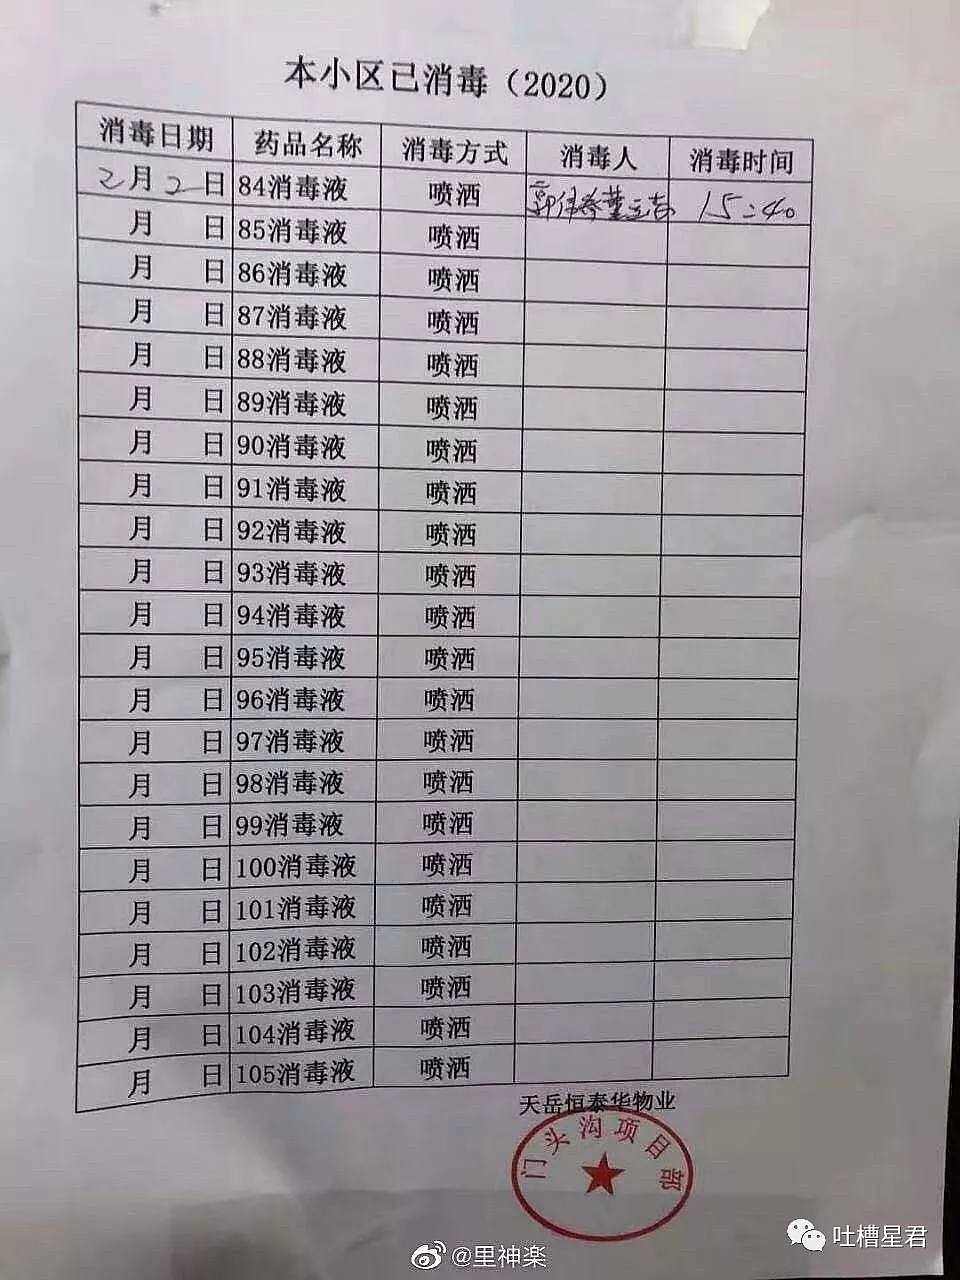 本小区已消毒（2020）
消毒日期 药品名称 消毒方式 消毒人 消毒时间
2月2日 84消毒液 喷洒 15:40
月 日 85消毒液 喷洒
月 日 86消毒液 喷洒
月 日 87消毒液 喷洒
月 日 88消毒液 喷洒
月 日 89消毒液 喷洒
月 日 90消毒液 喷洒
月 日 91消毒液 喷洒
月 日 92消毒液 喷洒
月 日 93消毒液 喷洒
月 日 94消毒液 喷洒
月 日 95消毒液 喷洒
月 日 96消毒液 喷洒
月 日 97消毒液 喷洒
月 日 98消毒液 喷洒
月 日 99消毒液 喷洒
月 日 100消毒液 喷洒
月 日 101消毒液 喷洒
月 日 102消毒液 喷洒
月 日 103消毒液 喷洒
月 日 104消毒液 喷洒
月 日 105消毒液 喷洒
天岳恒泰华物业
门头沟项目部
吐槽星君
@里神楽